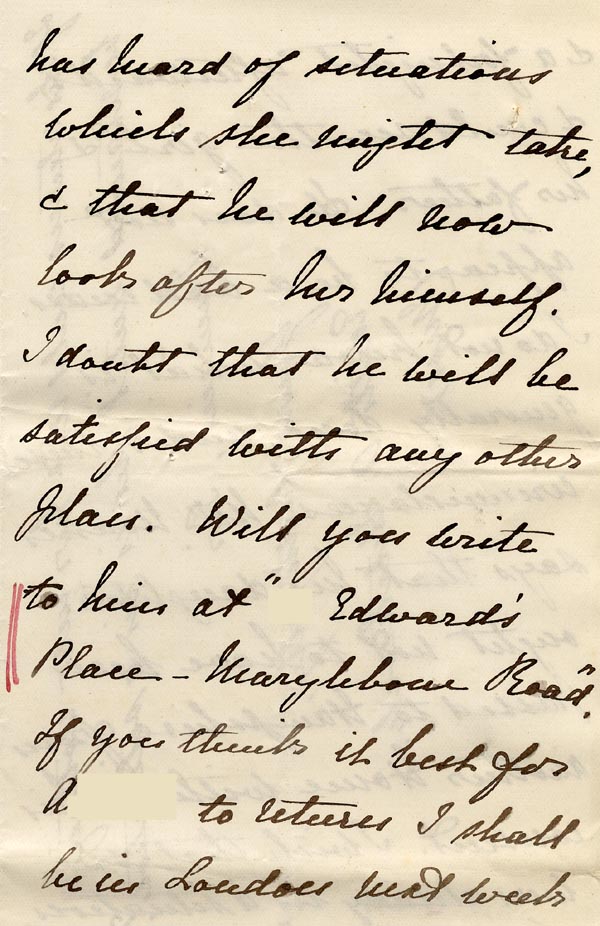 has heard of situations
which she might take,
& that he will now
look after her himself.
I doubt that he will be
satisfied with any other
plan. Will you write
to him at " Edward's
Place - Marylebone Road".
If you think it best for
A to return I shall
be in London next week